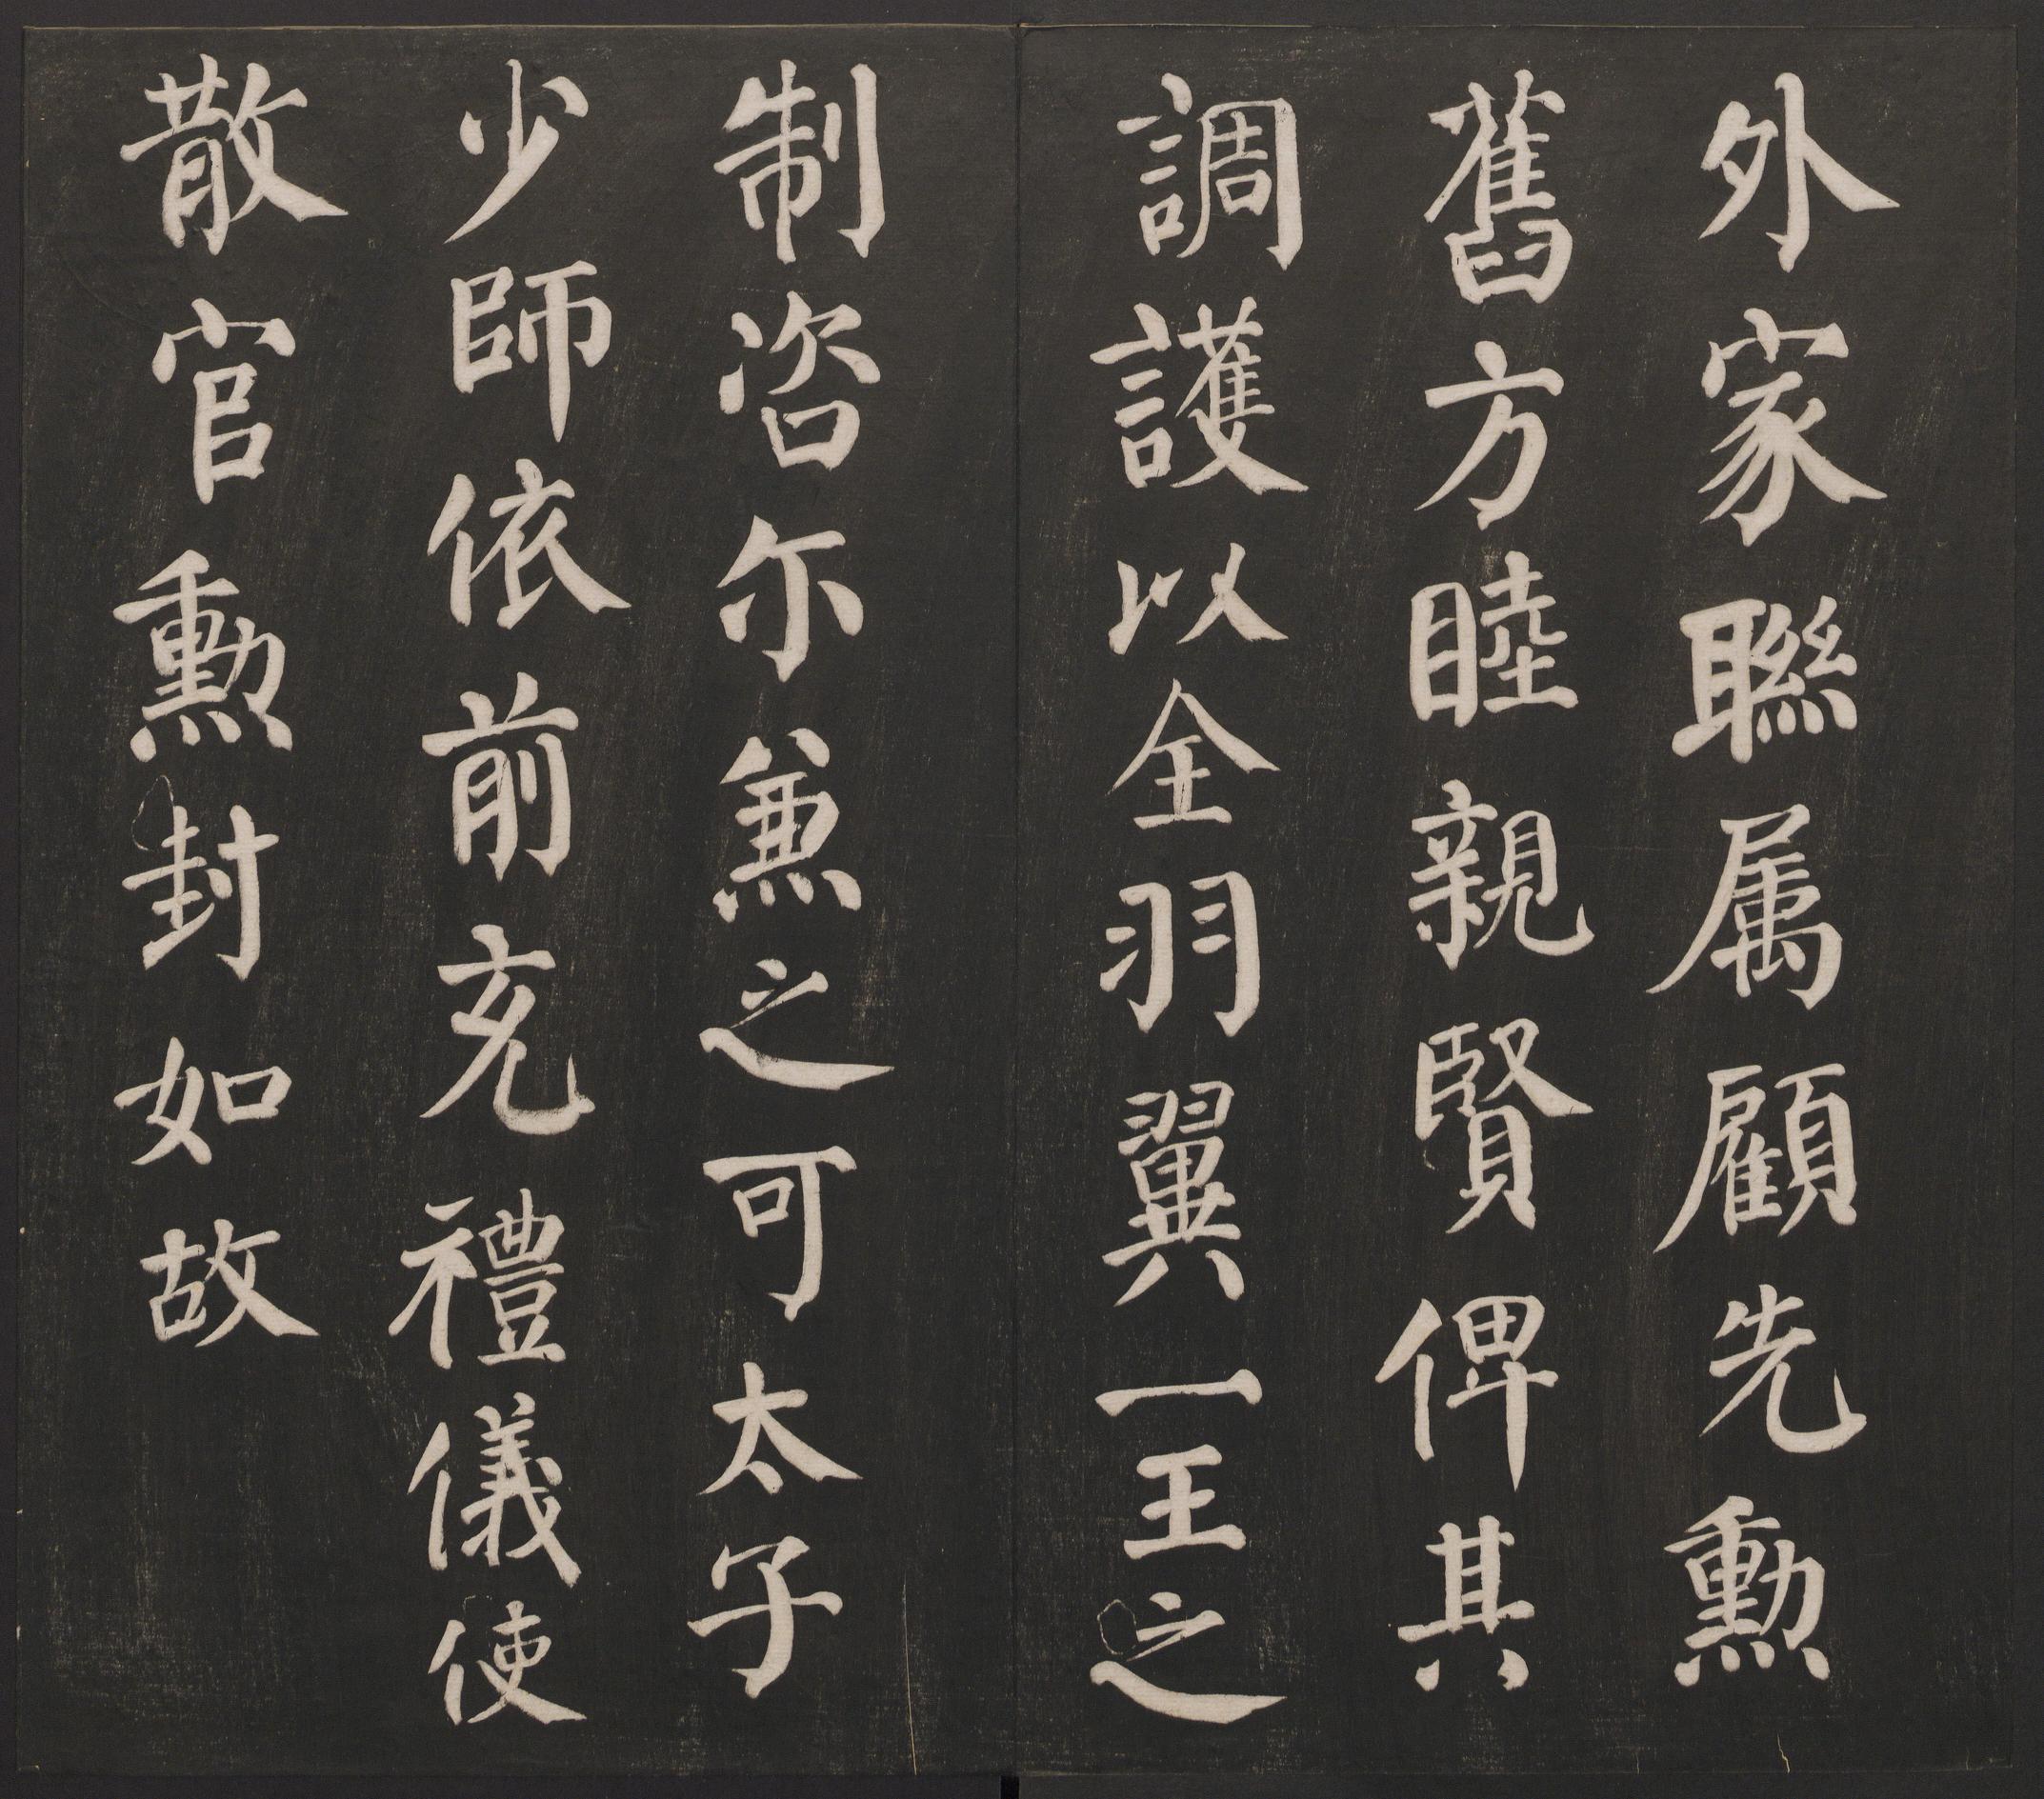 外家聮属顧先勳
舊方睦親賢俾其
調護以全羽翼一王之
制咨尓兼之可太子
少師依前充禮儀使
散官勳封如故